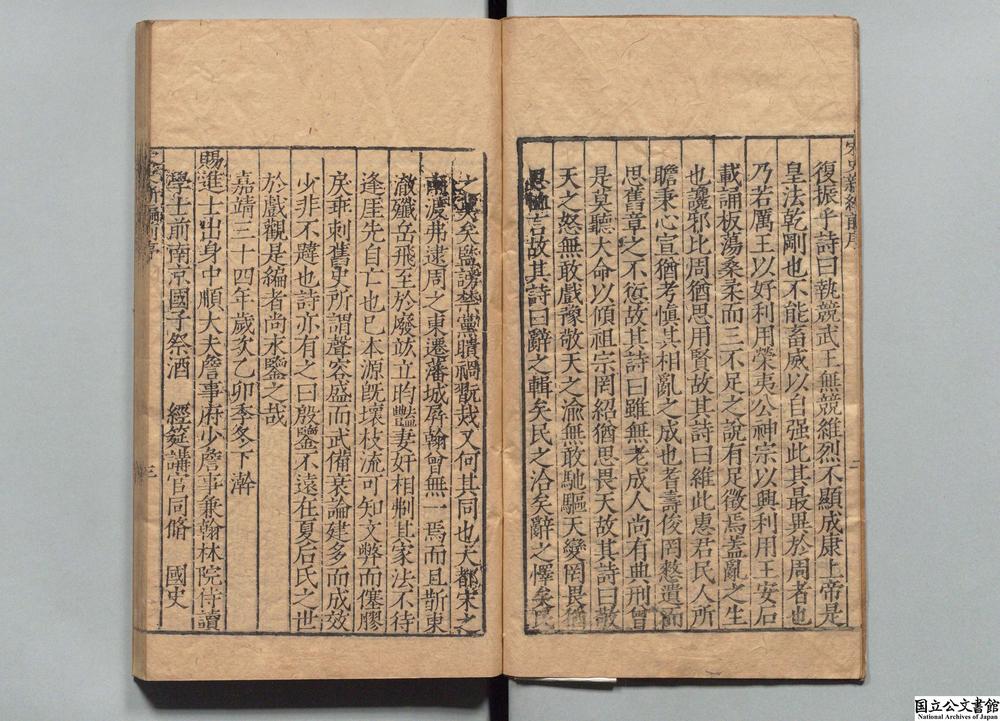 復振乎詩曰執競武王無競維烈不顯成康上帝是
皇法乾剛也不能畜威以自强此其最異於周者也
乃若厲王以好利用榮夷公神宗以興利用王安石
載誦板蕩桑柔而三不足之說有足徵焉蓋亂之生
也讒邪比周猶思用賢故其詩曰維此惠君民人所
瞻秉心宣猶考慎其相亂之成也耆壽俊罔憗遺而
思舊章之不愆故其詩曰雖無老成人尚有典刑曾
是莫聽大命以傾祖宗罔紹猶思畏天故其詩曰敬
天之怒無敢戲豫敬天之渝無敢馳驅天變罔畏猶
思 言故其詩曰辭之輯矣民之洽矣辭之懌矣民
之莫矣監謗禁黨隤禍戩烖又何其同也大都宋之
南渡弗逮周之東遷藩城屏翰曾無一焉而且斲東
澈殲岳飛至於廢竑立昀豔妻奸相制其家法不待
逢厓先自亡也已本源旣壞枝流可知文弊而僿膠
戾乖刺舊史所謂聲容盛而武備衰論建多而成效
少非不韙也詩亦有之曰殷鑒不遠在夏后氏之世
於戲觀是編者尚永鑒之哉
嘉靖三十四年歲次乙卯季冬下澣
賜進士出身中順大夫詹事府少詹事兼翰林院侍讀
學士前南京國子祭酒 經筵講官同脩 國史
三
国立公文書館
National Archives of Japan